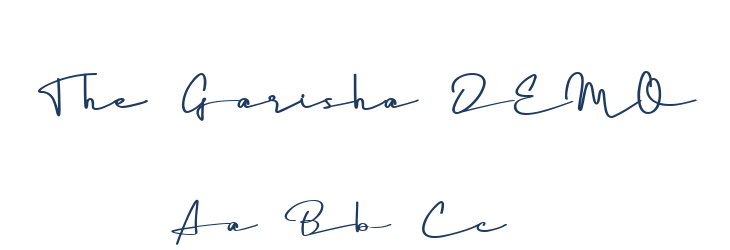 The Garisha DEMO
Aa Bb Cc